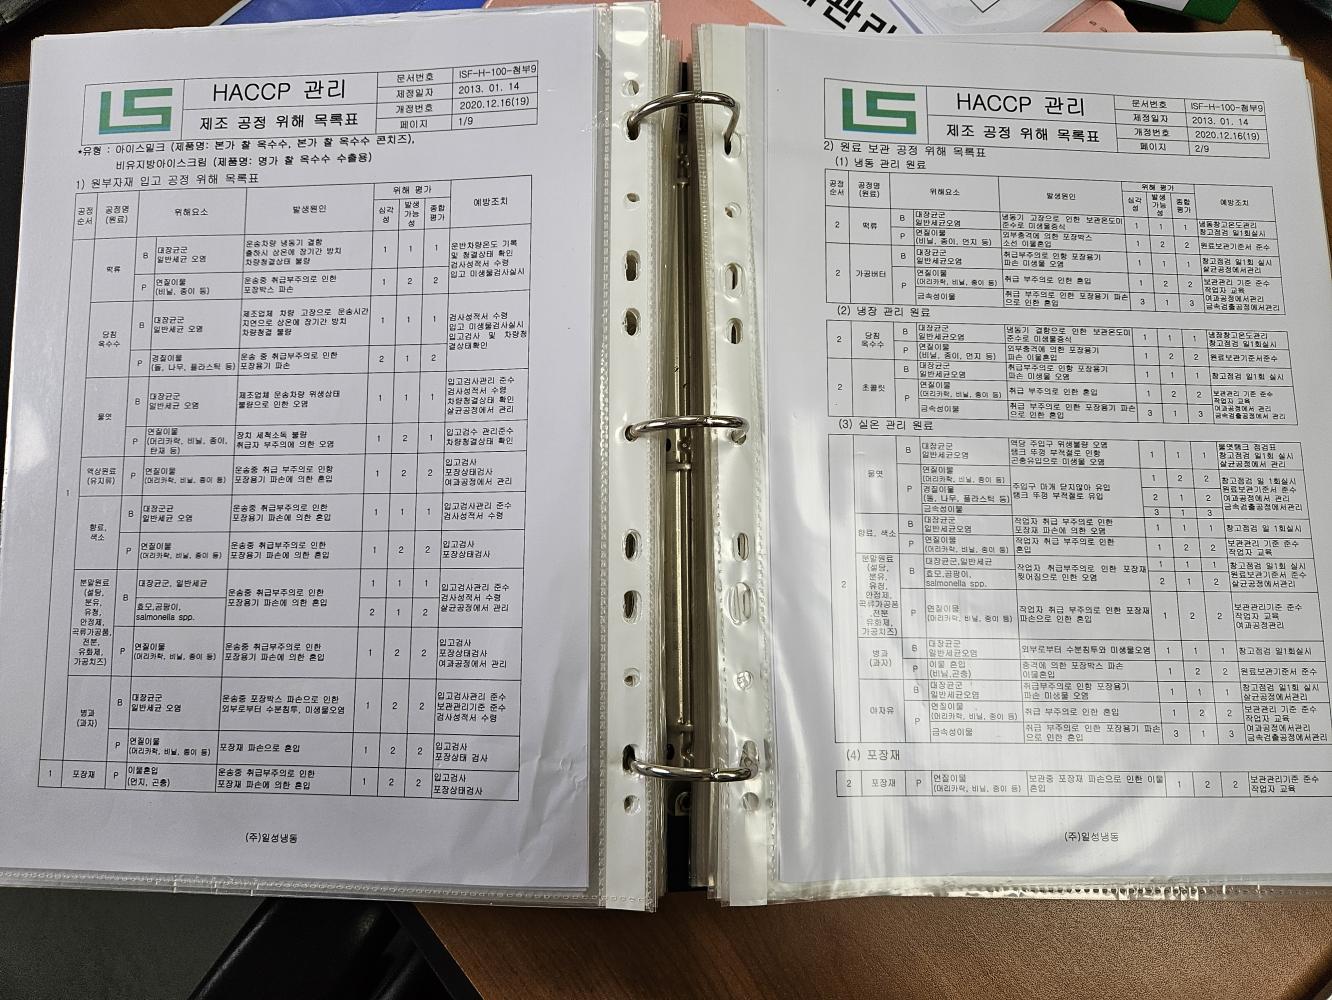 관리
LS
HACCP 관리
제조 공정 위해 목록표
문서번호 ISF-H-100-첨부9
제정일자 2013. 01. 14
개정번호 2020.12.16(19)
페이지 1/9
*유형 : 아이스밀크 (제품명: 본가 찰 옥수수, 본가 찰 옥수수 콘치즈),
비유지방아이스크림 (제품명: 명가 찰 옥수수 수출용)
1) 원부자재 입고 공정 위해 목록표
공정순서 공정명(원료) 위해요소 발생원인 위해 평가 예방조치
심각성 발생가능성 종합평가
1
떡류 B 대장균군 일반세균 오염 운송차량 냉동기 결함 출하시 상온에 장기간 방치 차량청결상태 불량 1 1 1 운반차량온도 기록 및 청결상태 확인 검사성적서 수령 입고 미생물검사실시
P 연질이물 (비닐, 종이 등) 운송중 취급부주의로 인한 포장박스 파손 1 2 2
당침 옥수수 B 대장균군 일반세균 오염 제조업체 차량 고장으로 운송시간 지연으로 상온에 장기간 방치 차량청결 불량 1 1 1 검사성적서 수령 입고 미생물검사실시 입고검사 및 차량청결상태확인
P 경질이물 (돌, 나무, 플라스틱 등) 운송 중 취급부주의로 인한 포장용기 파손 2 1 2
물엿 B 대장균군 일반세균 오염 제조업체 운송차량 위생상태 불량으로 인한 오염 1 1 1 입고검사관리 준수 검사성적서 수령 차량청결상태 확인 살균공정에서 관리
P 연질이물 (머리카락, 비닐, 종이, 탄재 등) 장치 세척소독 불량 취급자 부주의에 의한 오염 1 2 1 입고검수 관리준수 차량청결상태 확인
액상원료 (유지류) P 연질이물 (머리카락, 비닐, 종이 등) 운송중 취급 부주의로 인항 포장용기 파손에 의한 혼입 1 2 2 입고검사 포장상태검사 여과공정에서 관리
향료, 색소 B 대장균군 일반세균 오염 운송중 취급부주의로 인한 포장용기 파손에 의한 혼입 1 1 1 입고검사관리 준수 검사성적서 수령
P 연질이물 (머리카락, 비닐, 종이 등) 운송중 취급부주의로 인한 포장용기 파손에 의한 혼입 1 2 2 입고검사 포장상태검사
분말원료 (설탕, 분유, 유청, 안정제, 곡류가공품, 전분, 유화제, 가공치즈) B 대장균군, 일반세균 운송중 취급부주의로 인한 포장용기 파손에 의한 혼입 1 1 1 입고검사관리 준수 검사성적서 수령 살균공정에서 관리
효모,곰팡이, salmonella spp. 2 1 2
P 연질이물 (머리카락, 비닐, 종이 등) 운송중 취급부주의로 인한 포장용기 파손에 의한 혼입 1 2 2 입고검사 포장상태검사 여과공정에서 관리
병과 (과자) B 대장균군 일반세균 오염 운송중 포장박스 파손으로 인한 외부로부터 수분침투, 미생물오염 1 2 2 입고검사관리 준수 보관관리기준 준수 검사성적서 수령
P 연질이물 (머리카락, 비닐, 종이 등) 포장재 파손으로 혼입 1 2 2 입고검사 포장상태 검사
1 포장재 P 이물혼입 (먼지, 곤충) 운송중 취급부주의로 인한 포장재 파손에 의한 혼입 1 2 2 입고검사 포장상태검사
(주)일성냉동
LS
HACCP 관리
제조 공정 위해 목록표
문서번호 ISF-H-100-첨부9
제정일자 2013. 01. 14
개정번호 2020.12.16(19)
페이지 2/9
2) 원료 보관 공정 위해 목록표
(1) 냉동 관리 원료
공정순서 공정명(원료) 위해요소 발생원인 위해 평가 예방조치
심각성 발생가능성 종합평가
2 떡류 B 대장균군 일반세균오염 냉동기 고장으로 인한 보관온도미준수로 미생물증식 1 1 1 냉동창고온도관리 창고점검 일1회실시
P 연질이물 (비닐, 종이, 먼지 등) 외부충격에 의한 포장박스 소선 이물혼입 1 2 2 원료보관기준서 준수
2 가공버터 B 대장균군 일반세균오염 취급부주의로 인항 포장용기 파손 미생물 오염 1 1 1 창고점검 일1회 실시 살균공정에서관리
P 연질이물 (머리카락, 비닐, 종이 등) 취급 부주의로 인한 혼입 1 2 2 보관관리 기준 준수 작업자 교육
금속성이물 취급 부주의로 인한 포장용기 파손으로 인한 혼입 3 1 3 여과공정에서관리 금속검출공정에서관리
(2) 냉장 관리 원료
2 당침 옥수수 B 대장균군 일반세균오염 냉동기 결함으로 인한 보관온도미준수로 미생물증식 1 1 1 냉장창고온도관리 창고점검 일1회실시
P 연질이물 (비닐, 종이, 먼지 등) 외부충격에 의한 포장용기 파손 이물혼입 1 2 2 원료보관기준서준수
2 초콜릿 B 대장균군 일반세균오염 취급부주의로 인항 포장용기 파손 미생물 오염 1 1 1 창고점검 일1회 실시
P 연질이물 (머리카락, 비닐, 종이 등) 취급 부주의로 인한 혼입 1 2 2 보관관리 기준 준수 작업자 교육
금속성이물 취급 부주의로 인한 포장용기 파손으로 인한 혼입 3 1 3 여과공정에서관리 금속검출공정에서관리
(3) 실온 관리 원료
2
물엿 B 대장균군 일반세균오염 역당 주입구 위생불량 오염 탱크 뚜껑 부적절로 인항 곤충유입으로 미생물 오염 1 1 1 물엿탱크 점검표 창고점검 일1회 실시 살균공정에서 관리
P 연질이물 (머리카락, 비닐, 종이 등) 주입구 마개 닫지않아 유입 탱크 뚜껑 부적절로 유입 1 2 2 창고점검 일 1회실시 원료보관기준서 준수
경질이물 (돌, 나무, 플라스틱 등) 2 1 2 여과공정에서관리
금속성이물 3 1 3 금속검출공정에서관리
향료, 색소 B 대장균군 일반세균오염 작업자 취급 부주의로 인한 포장재 파손에 의한 오염 1 1 1 창고점검 일 1회실시
P 연질이물 (머리카락, 비닐, 종이 등) 작업자 취급 부주의로 인한 혼입 1 2 2 보관관리 기준 준수 작업자 교육
분말원료 (설탕, 분유, 유청, 안정제, 곡류가공품, 전분, 유화제, 가공치즈) B 대장균군,일반세균 작업자 취급부주의로 인한 포장재 찢어짐으로 인한 오염 1 1 1 창고점검 일1회실시 원료보관기준서 준수 살균공정에서관리
효모,곰팡이, salmonella spp. 2 1 2
P 연질이물 (머리카락, 비닐, 종이 등) 작업자 취급 부주의로 인한 포장재 파손으로 인한 혼입 1 2 2 보관관리기준 준수 작업자 교육 여과공정관리
병과 (과자) B 대장균군 일반세균오염 외부로부터 수분침투와 미생물오염 1 1 1 창고점검 일1회실시
P 이물 혼입 (비닐,곤충) 충격에 의한 포장박스 파손 이물혼입 1 2 2 원료보관기준서 준수
야자유 B 대장균군 일반세균오염 취급부주의로 인항 포장용기 파손 미생물 오염 1 1 1 창고점검 일1회 실시 살균공정에서관리
P 연질이물 (머리카락, 비닐, 종이 등) 취급 부주의로 인한 혼입 1 2 2 보관관리 기준 준수 작업자 교육
금속성이물 취급 부주의로 인한 포장용기 파손으로 인한 혼입 3 1 3 여과공정에서관리 금속검출공정에서관리
(4) 포장재
2 포장재 P 연질이물 (머리카락, 비닐, 종이 등) 보관중 포장재 파손으로 인한 이물혼입 1 2 2 보관관리기준 준수 작업자 교육
(주)일성냉동